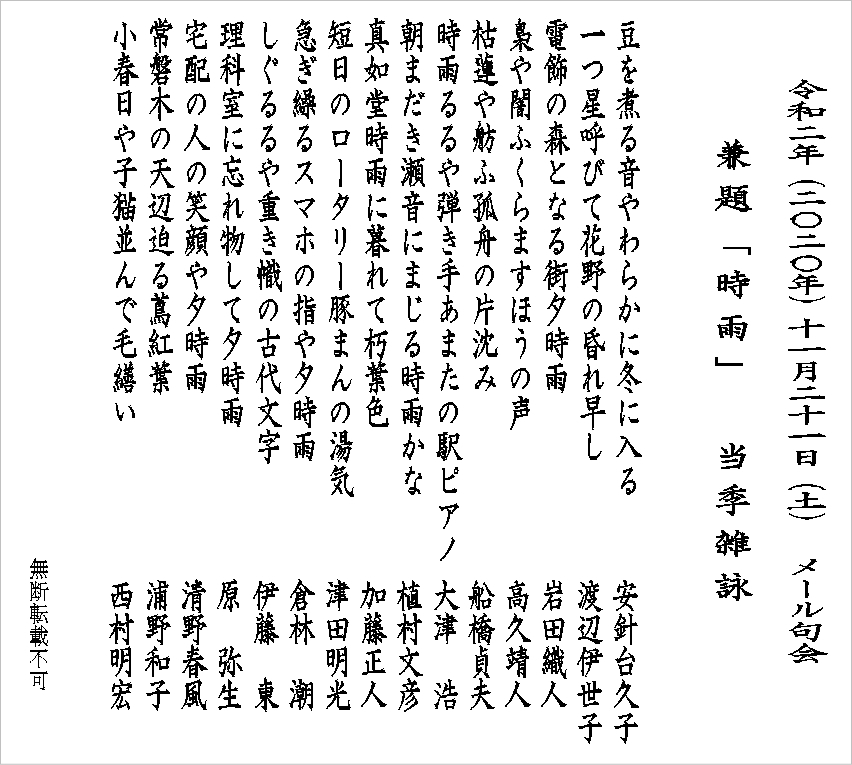 令和二年（二〇二〇年）十一月二十一日（土）　メール句会
兼題「時雨」　当季雑詠
豆を煮る音やわらかに冬に入る　安針台久子
一つ星呼びて花野の昏れ早し　渡辺伊世子
電飾の森となる街夕時雨　岩田織人
梟や闇ふくらますほうの声　高久靖人
枯蓮や舫ふ孤舟の片沈み　船橋貞夫
時雨るるや弾き手あまたの駅ピアノ　大津　浩
朝まだき瀬音にまじる時雨かな　植村文彦
真如堂時雨に暮れて朽葉色　加藤正人
短日のロータリー豚まんの湯気　津田明光
急ぎ繰るスマホの指や夕時雨　倉林　潮
しぐるるや重き幟の古代文字　伊藤　東
理科室に忘れ物して夕時雨　原　弥生
宅配の人の笑顔や夕時雨　清野春風
常磐木の天辺迫る蔦紅葉　浦野和子
小春日や子猫並んで毛繕い　西村明宏
無断転載不可